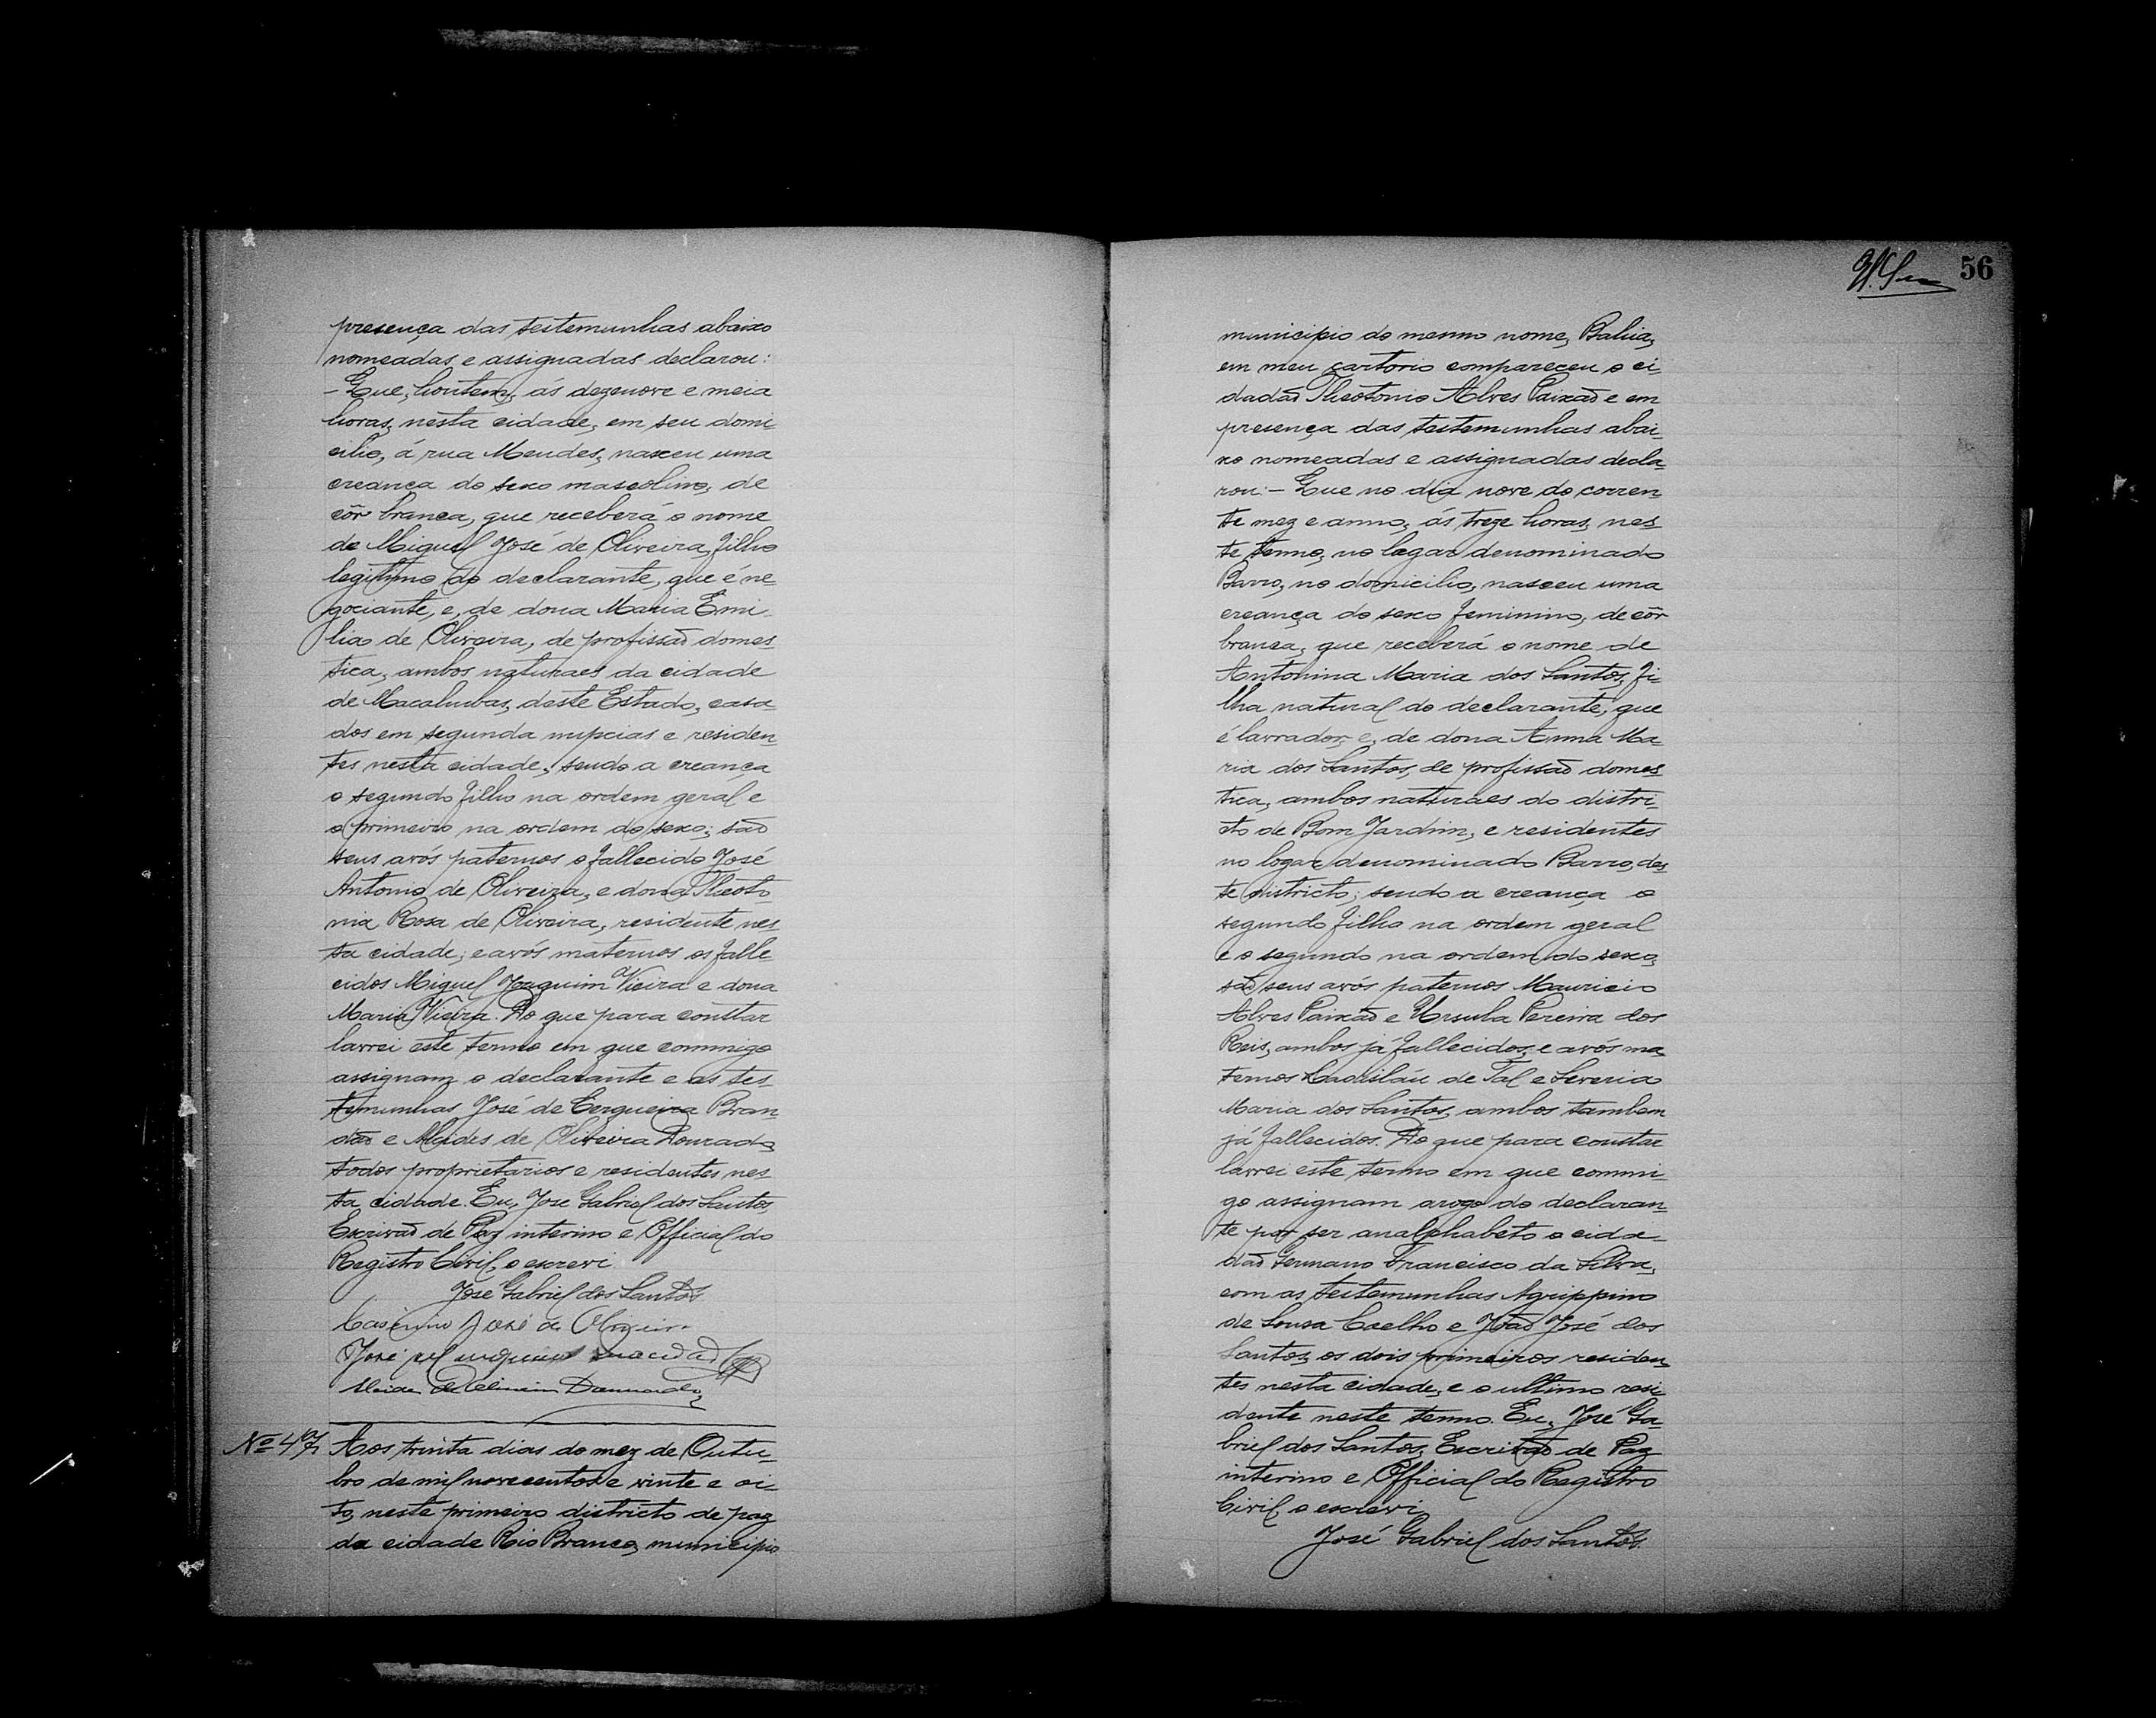 presença das testemunhas abaixo
nomeadas e assignadas declarou:
- Que, hontem, ás dezenove e meia
horas, nesta cidade, em seu domi-
cilio, á rua Mendes, nasceu uma
creança do sexo mascolino, de
côr branca, que receberá o nome
de Miguel José de Oliveira, filho
legitimo do declarante, que é ne-
gociante, e, de dona Maria Emi-
lia de Oliveira, de profissão domes-
tica, ambos naturaes da cidade
de Macahubas, deste Estado, casa-
dos em segunda nupcias e residen-
tes nesta cidade, sendo a creança
o segundo filho na ordem geral e
o primeiro na ordem do sexo; são
seus avós paternos o fallecido José
Antonio de Oliveira, e dona Theoto-
nia Rosa de Oliveira, residente nes-
ta cidade; e avós maternos os falle-
cidos Miguel Joaquim Vieira e dona
Maria Vieira. Do que para constar
lavrei este termo em que commigo
assignam o declarante e as tes-
temunhas José de Cerqueira Bran-
dão e Alcides de Oliveira Dourado,
todos proprietarios e residentes nes-
ta cidade. Eu, José Gabriel dos Santos,
Escrivão de Paz interino e Official do
Registro Civil, o escrevi
José Gabriel dos Santos
Casimiro José de Oliveira
José
Alcides de Oliveira Dourado
Nº 47 Aos trinta dias do mez de Outu-
bro de mil novecentos e vinte e oi-
to, neste primeiro districto de paz
da cidade Rio Branco, municipio
56
municipio do mesmo nome, Bahia,
em meu cartorio compareceu o ci-
dadão Theotonio Alves Paixão e em
presença das testemunhas abai-
xo nomeadas e assignadas decla-
rou:- Que no dia nove do corren-
te mez e anno, ás treze horas, nes-
te termo, no logar denominado
Barro, no domicilio, nasceu uma
creança do sexo feminino, de côr
branca, que receberá o nome de
Antonina Maria dos Santos, fi-
lha natural do declarante, que
é lavrador, e, de dona Anna Ma-
ria dos Santos, de profissão domes-
tica, ambos naturaes do distri-
cto de Bom Jardim, e residentes
no logar denominado Barro, des-
te districto; sendo a creança o
segundo filho na ordem geral
e o segundo na ordem do sexo;
são seus avós paternos Mauricio
Alves Paixão e Ursula Pereira dos
Reis, ambos já fallecidos; e avós ma-
ternos Ladisláu de Tal e Severia
Maria dos Santos, ambos tambem
já fallecidos. Do que para constar
lavrei este termo em que commi-
go assignam arogo do declaran-
te por ser analphabeto o cida-
dão Germano Francisco da Silva,
com as testemunhas Agrippino
de Sousa Coelho e João José dos
Santos, os dois primeiros residen-
tes nesta cidade, e o ultimo resi-
dente neste termo. Eu, José Ga-
briel dos Santos, Escrivão de Paz
interino e Official do Registro
Civil, o escrevi
José Gabriel dos Santos.